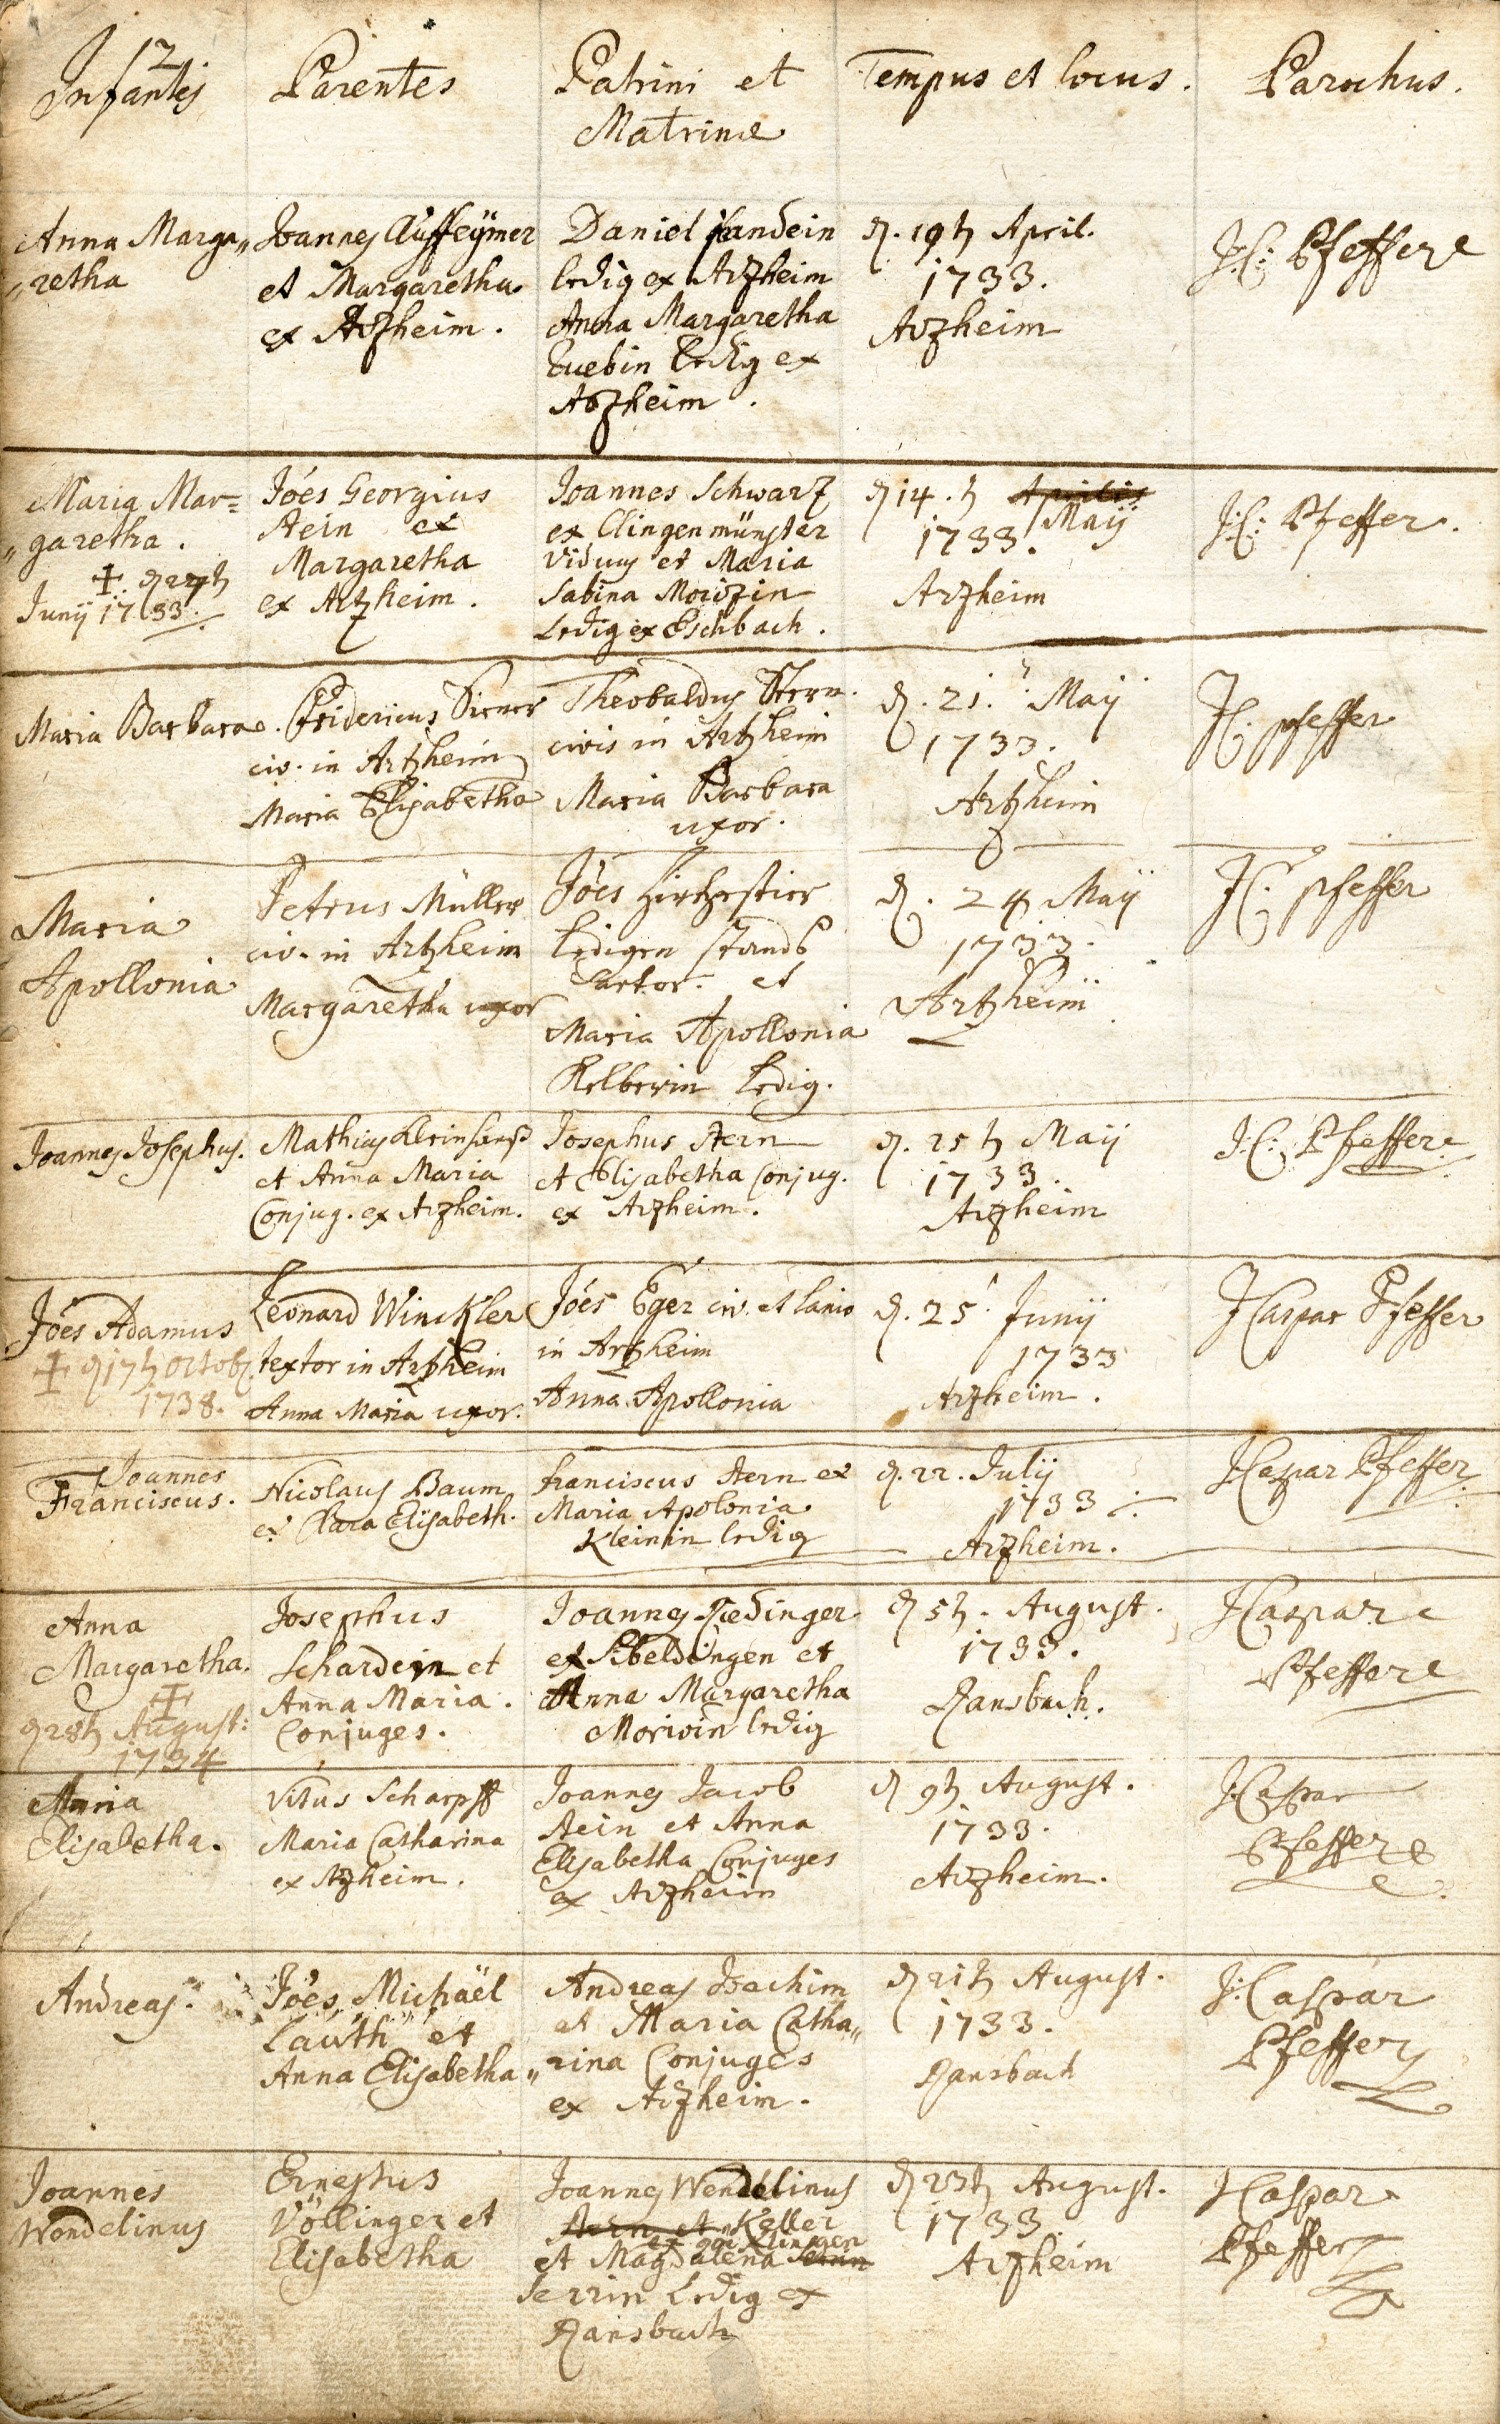 12
Infantes
Parentes
Patrini et
Matrinæ
Tempus et locus.
Parochus.
Anna Marga„
„retha
Joannes Auffeÿmer
et Margaretha
ex Arzheim.
Daniel Jandein
ledig ex Arzheim
Anna Margaretha
ledig ex
Arzheim.
d. 19t April.
1733.
Arzheim
J:C: Pfeffer
Maria Mar=
„garetha.
+ d 27t
Junÿ 1733.
Jóes Georgius
Stein et
Margaretha
ex Artzheim.
Joannes Schwarz
ex Clingenmünster
viduus et Maria
Sabina Morizin
Ledig ex Eschbach.
d 14.t Aprilis
Maÿ
1733.
Arzheim
J:C: Pfeffer.
Maria Barbara.
Fridericus Dirner
civ. in Artzheim
Maria Elisabetha
Theobaldus Stern.
civis in Artzheim
Maria Barbara
uxor.
d. 21. Maÿ
1733.
Artzheim
JC. pfeffer
Maria
Apollonia
Petrus Müller
civ. in Artzheim
Margaretha uxor
Jóes
Ledigen stands
Sartor. et
Maria Apollonia
Kelberin Ledig.
d. 24 Maÿ
1733.
Artzheim
JC. pfeffer
Joannes Josephus.
Mathias Kleinhans
et Anna Maria
Conjug. ex Arzheim.
Josephus Stern
et Elisabetha Conjug.
ex Arzheim.
d. 25t Maÿ
1733.
Arzheim
J:C: Pfeffer
Jóes Adamus
+ d 17t Octob.
1738.
Leonard Winckler
textor in Artzheim
Anna Maria uxor.
Jóes Eger civ. et lanio
in Artzheim
Anna Apollonia
d. 25 Junÿ
1733
Arzheim.
JCaspar Pfeffer
Joannes
Franciscus.
Nicolaus Baum
et Clara Elisabeth.
Franciscus Stern et
Maria Apolonia
Kleinin ledig
d. 22. Julÿ
1733
Arzheim.
JCaspar Pfeffer
Anna
Margaretha.
+
d 28t August:
1734
Josephus
Schardein et
Anna Maria.
Conjuges.
Joannes Riedinger
ex Sibeldingen et
Anna Margaretha
Morizin ledig
d 5t. August.
1733.
Ransbach.
JCaspar
Pfeffer
Maria
Elisabetha.
Vitus Scharpff
Maria Catharina
ex Arzheim.
Joannes Jacob
Stein et Anna
Elisabetha Conjuges
ex Arzheim
d 9t August.
1733.
Arzheim.
JCaspar
Pfeffer
Andreas.
Jóes Michaël
Lauth et
Anna Elisabetha„
Andreas Joachim
et Maria Catha„
rina Conjuges
ex Arzheim.
d 21t August.
1733.
Ransbach
J:Caspar
Pfeffer
Joannes
Wendelinus
Ernestus
Völlinger et
Elisabetha
Joannes Wendelinus
Stern et Keller
ex Klingen
et Magdalena
Serrin Ledig ex
Ransbach
d 23t August.
1733.
Arzheim
JCaspar
Pfeffer